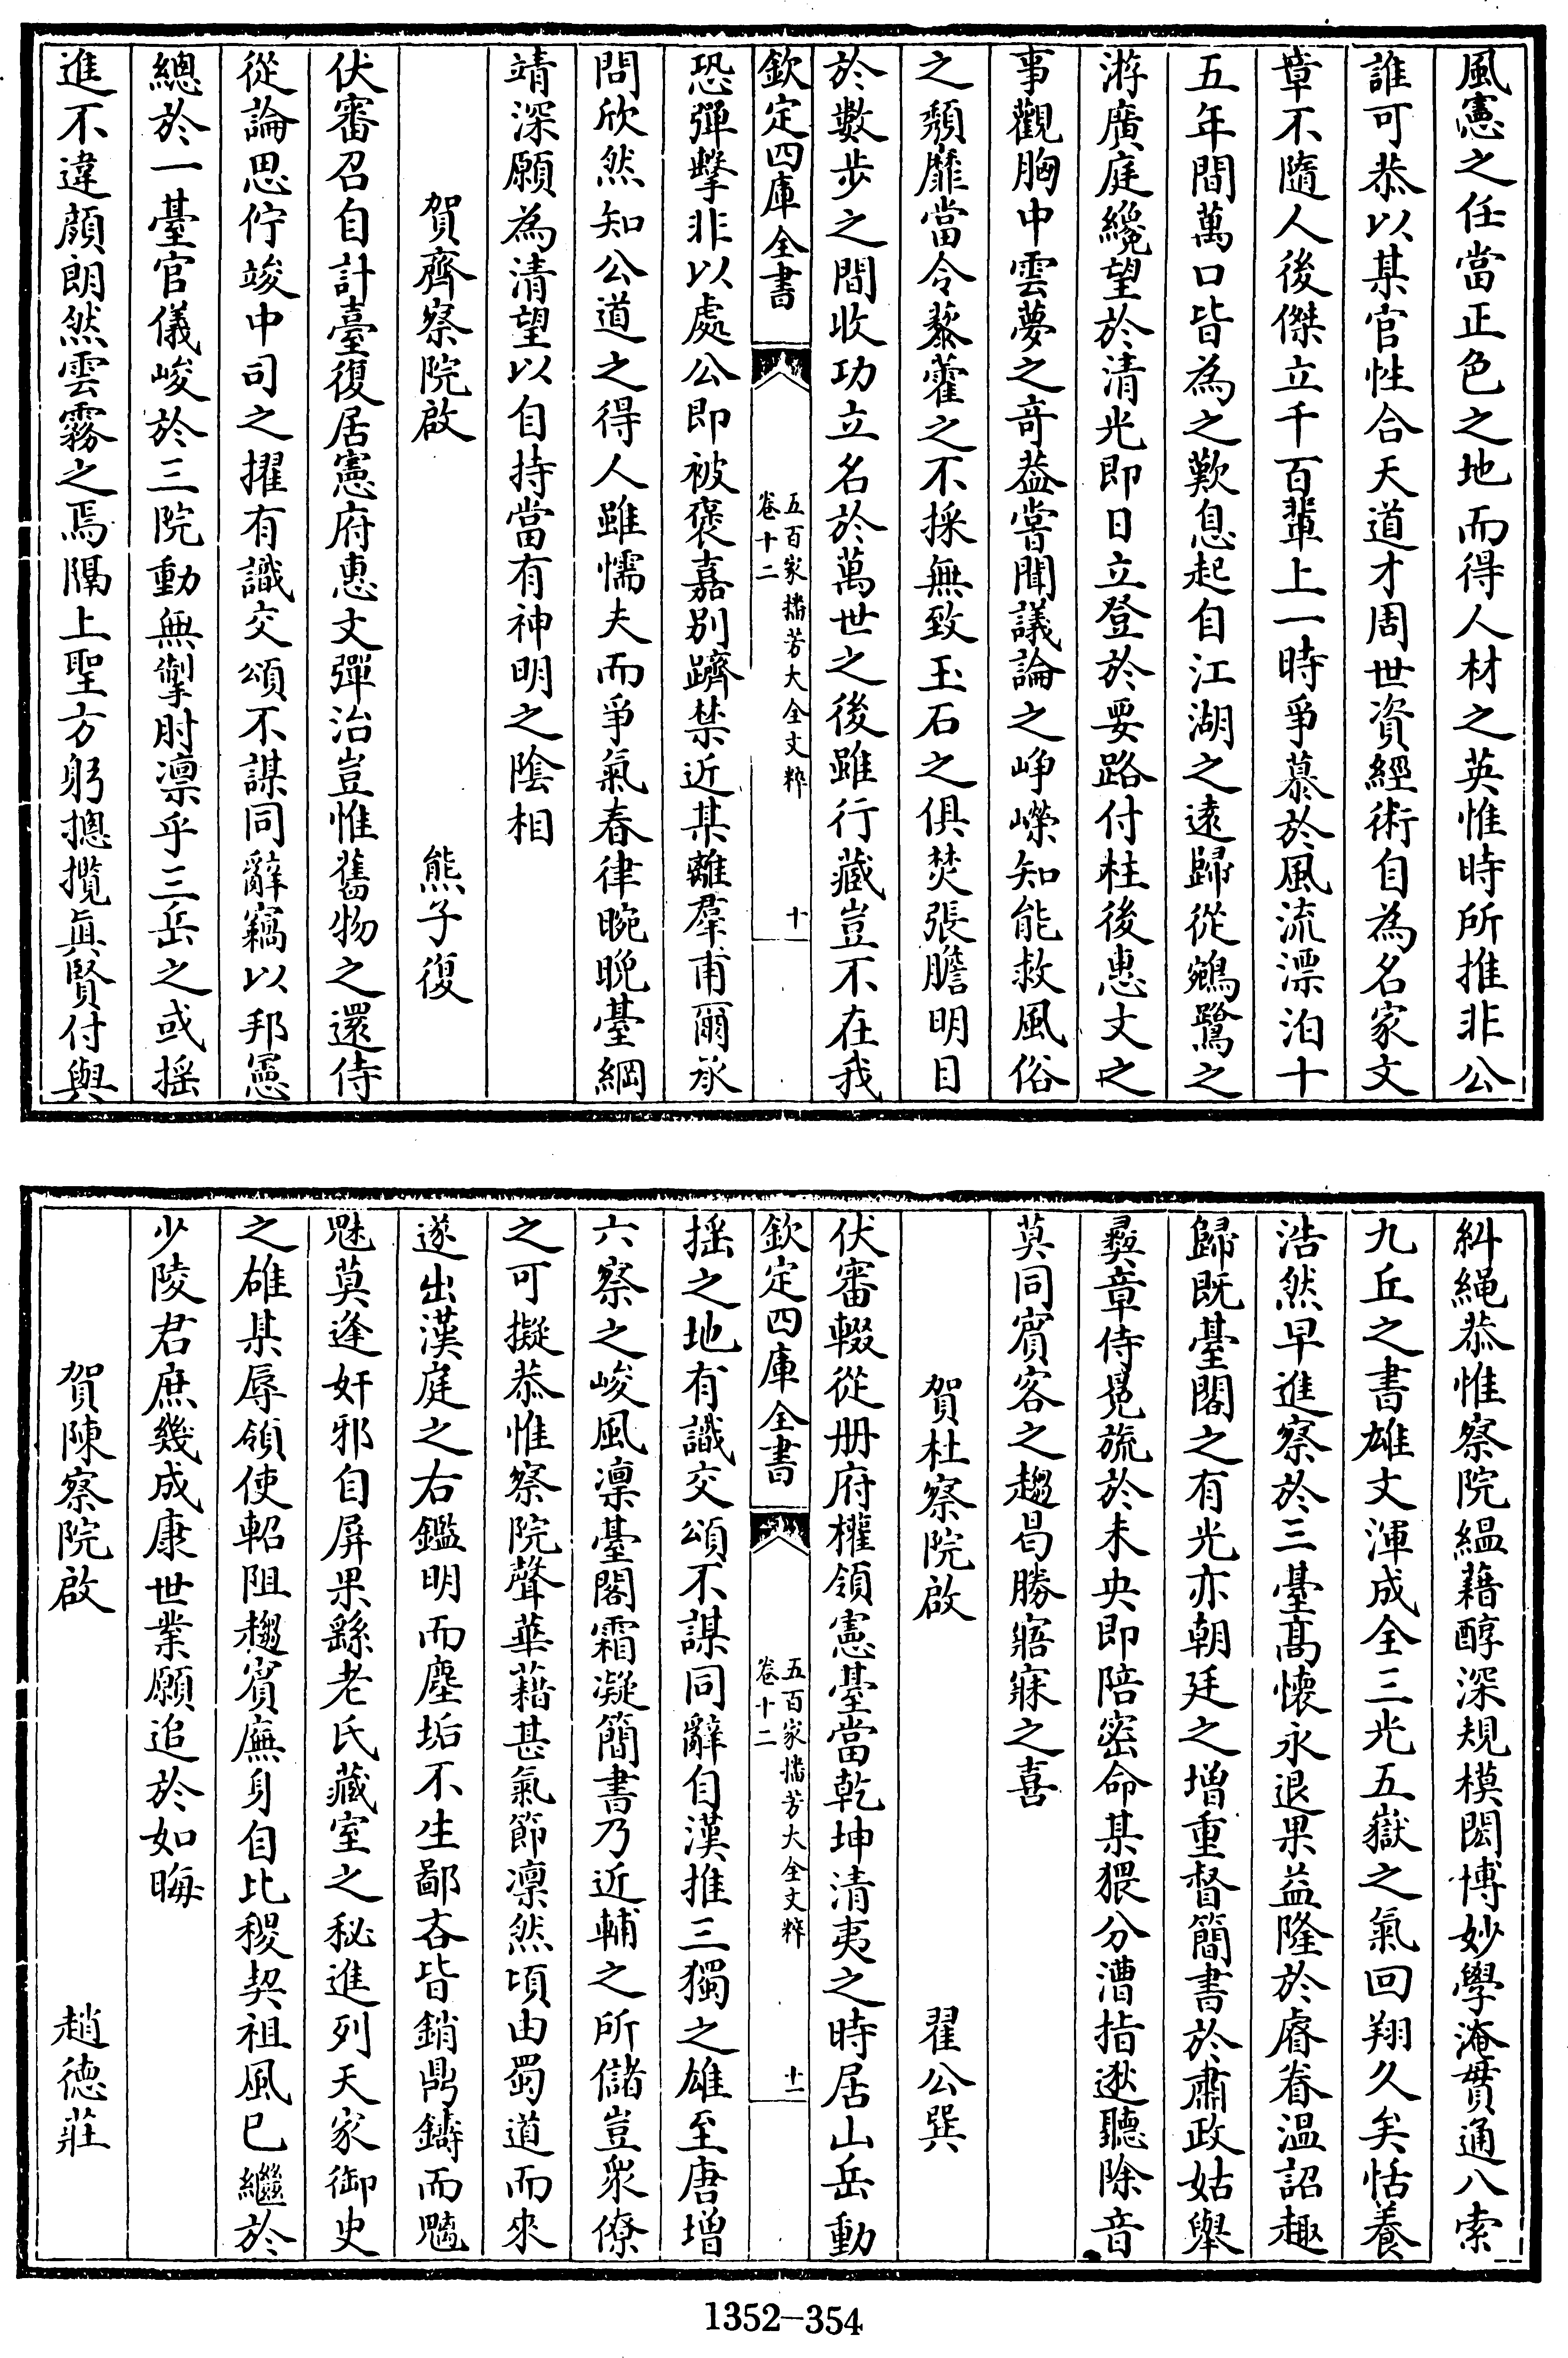 風憲之任當正色之地而得人材之英惟時所推非公
誰可恭以某官性合天道才周世資經術自為名家文
章不隨人後傑立千百輩上一時爭慕於風流漂泊十
五年間萬口皆為之歎息起自江湖之遠歸從鵷鷺之
游廣庭纔望於清光即日立登於要路付柱後惠文之
事觀胸中雲夢之奇葢嘗聞議論之崢嶸知能救風俗
之頽靡當令藜藿之不採無致玉石之俱焚張膽明目
於數步之間收功立名於萬世之後雖行藏豈不在我
欽定四庫全書
五百家播芳大全文粹
卷十二
十
恐彈擊非以處公即被褒嘉別躋禁近某離羣甫爾承
問欣然知公道之得人雖懦夫而爭氣春律晼晚臺綱
靖深願為清望以自持當有神明之陰相
賀齊察院啟 熊子復
伏審召自計臺復居憲府惠文彈治豈惟舊物之還侍
從論思佇竣中司之擢有識交頌不謀同辭竊以邦憲
總於一臺官儀峻於三院動無掣肘凛乎三岳之或揺
進不違顔朗然雲霧之焉隔上聖方躬摠攬眞賢付與
糾繩恭惟察院緼藉醇深規模閎博妙學淹貫通八索
九丘之書雄文渾成全三光五嶽之氣回翔久矣恬養
浩然早進察於三臺髙懷永退果益隆於睿眷温詔趣
歸既臺閣之有光亦朝廷之增重督簡書於肅政姑舉
彞章侍冕旒於未央即陪密命某猥分漕指逖聽除音
莫同賓客之趨曷勝寤寐之喜
賀杜察院啟 翟公巽
伏審輟從册府權領憲臺當乾坤清夷之時居山岳動
欽定四庫全書
五百家播芳大全文粹
卷十二
十一
揺之地有識交頌不謀同辭自漢推三獨之雄至唐增
六察之峻風凛臺閣霜凝簡書乃近輔之所儲豈衆僚
之可擬恭惟察院聲華藉甚氣節凛然頃由蜀道而來
遂出漢庭之右鑑明而塵垢不生鄙吝皆銷鼎鑄而魑
魅莫逢奸邪自屏果繇老氏藏室之秘進列天家御史
之雄某辱領使軺阻趨賓廡身自比稷契祖風已繼於
少陵君庶幾成康世業願追於如晦
賀陳察院啟 趙德莊
1352-354